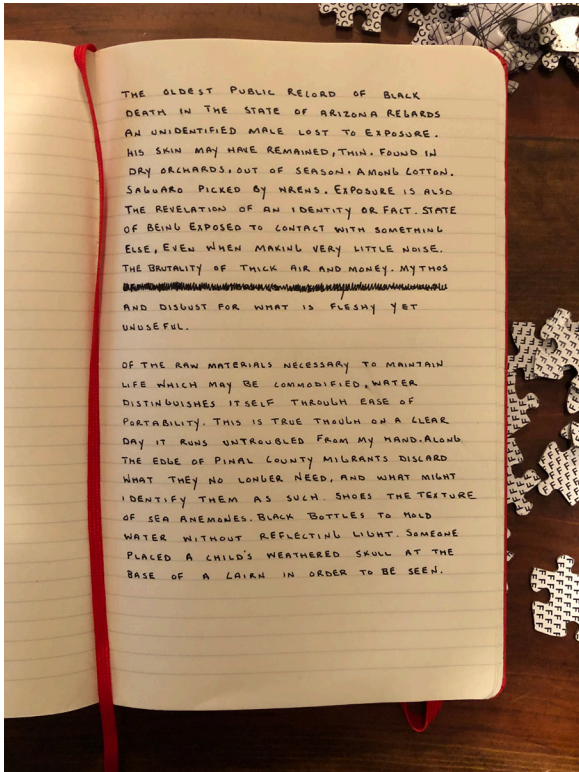 THE OLDEST PUBLIC RECORD OF BLACK
DEATH IN THE STATE OF ARIZONA REGARDS
AN UNIDENTIFIED MALE LOST TO EXPOSURE.
HIS SKIN MAY HAVE REMAINED, THIN. FOUND IN
DRY ORCHARDS, OUT OF SEASON. AMONG COTTON.
SAGUARO PICKED BY WRENS. EXPOSURE IS ALSO
THE REVELATION OF AN IDENTITY OR FACT. STATE
OF BEING EXPOSED TO CONTACT WITH SOMETHING
ELSE, EVEN WHEN MAKING VERY LITTLE NOISE.
THE BRUTALITY OF THICK AIR AND MONEY. MYTHOS
AND DISGUST FOR WHAT IS FLESHY YET
UNUSEFUL.
OF THE RAW MATERIALS NECESSARY TO MAINTAIN
LIFE WHICH MAY BE COMMODIFIED, WATER
DISTINGUISHES ITSELF THROUGH EASE OF
PORTABILITY. THIS IS TRUE THOUGH ON A CLEAR
DAY IT RUNS UNTROUBLED FROM MY HAND. ALONG
THE EDGE OF PINAL COUNTY MIGRANTS DISCARD
WHAT THEY NO LONGER NEED, AND WHAT MIGHT
IDENTIFY THEM AS SUCH. SHOES THE TEXTURE
OF SEA ANEMONES. BLACK BOTTLES TO HOLD
WATER WITHOUT REFLECTING LIGHT. SOMEONE
PLACED A CHILD'S WEATHERED SKULL AT THE
BASE OF A CAIRN IN ORDER TO BE SEEN.